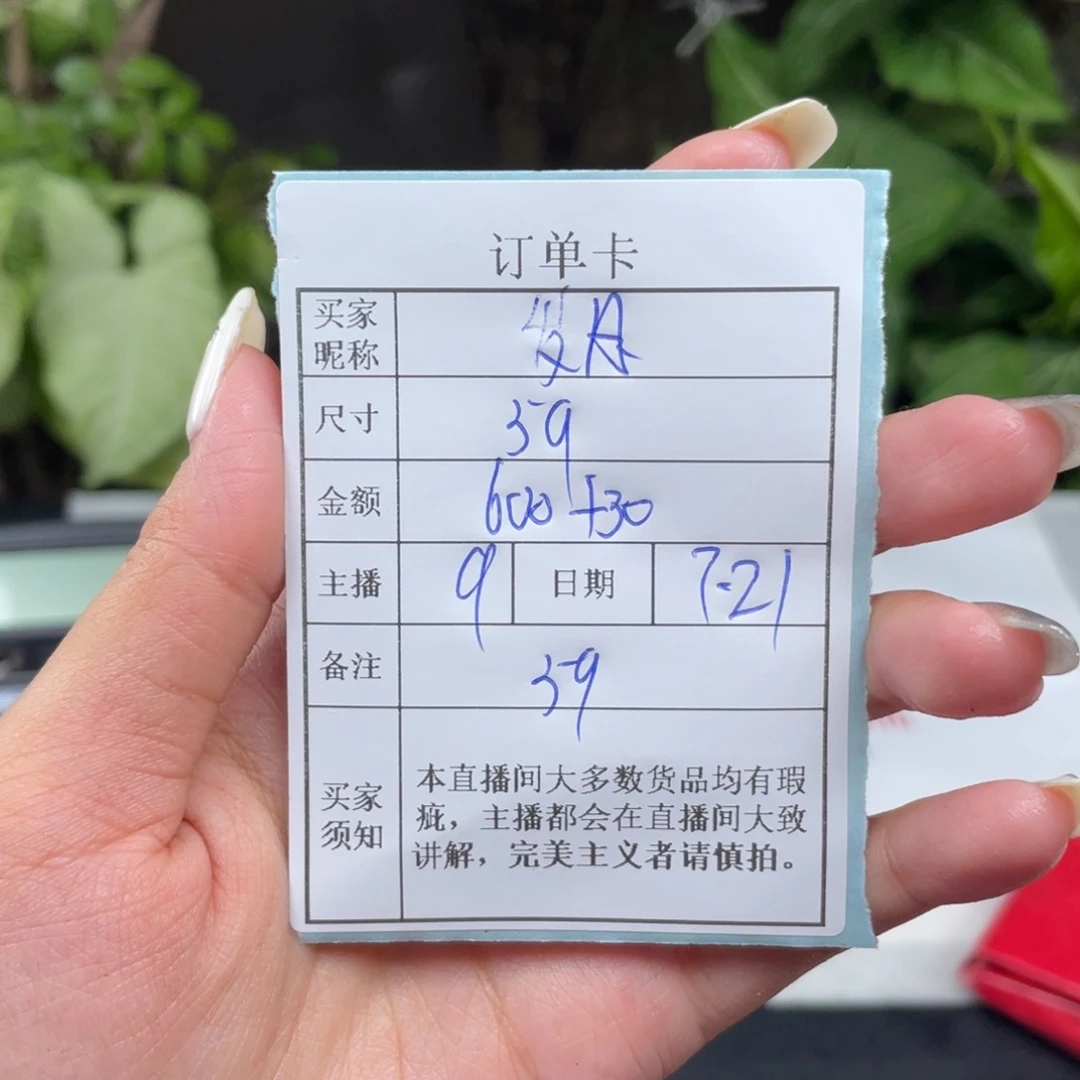 订单卡
买家
昵称
尺寸 59
金额 600+30
主播 9 日期 7.21
备注 59
买家
须知
本直播间大多数货品均有瑕
疵，主播都会在直播间大致
讲解，完美主义者请慎拍。